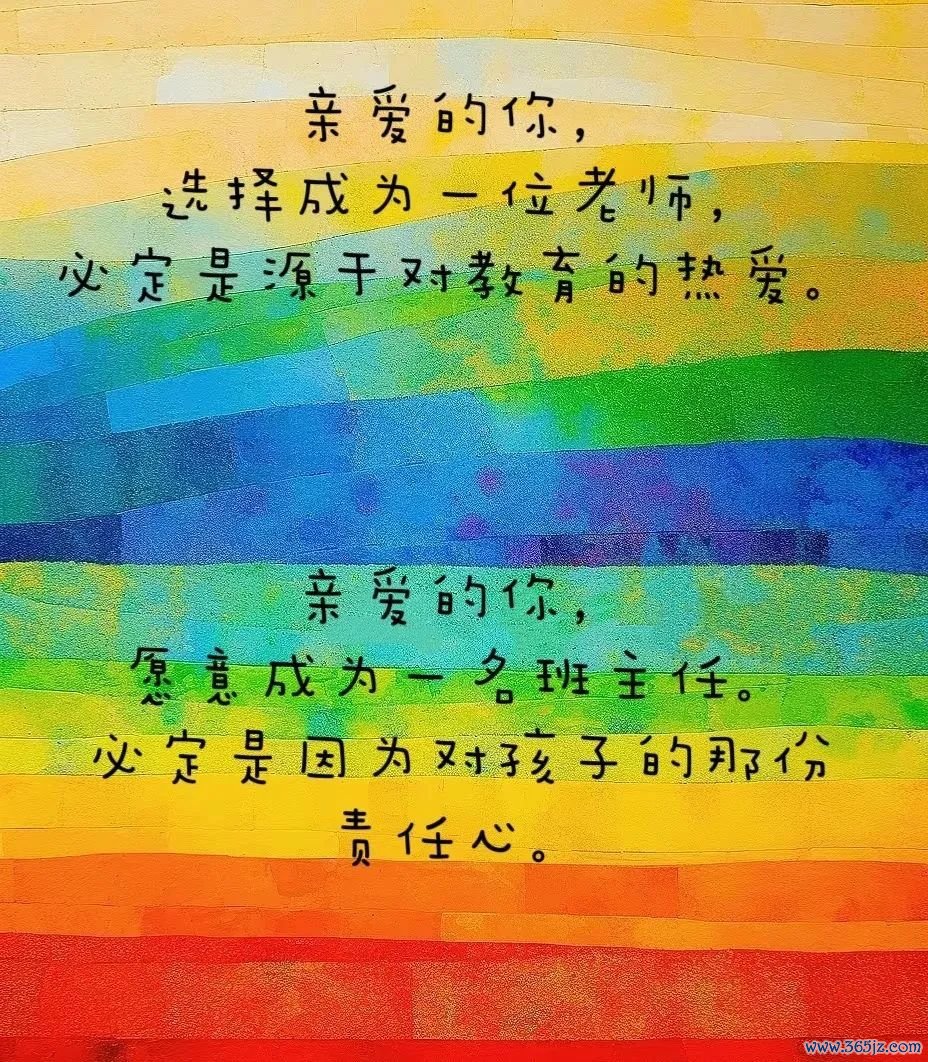 亲爱的你,
选择成为一位老师,
必定是源于对教育的热爱。
亲爱的你,
愿意成为一名班主任。
必定是因为对孩子的那份
责任心。
www.365jz.com